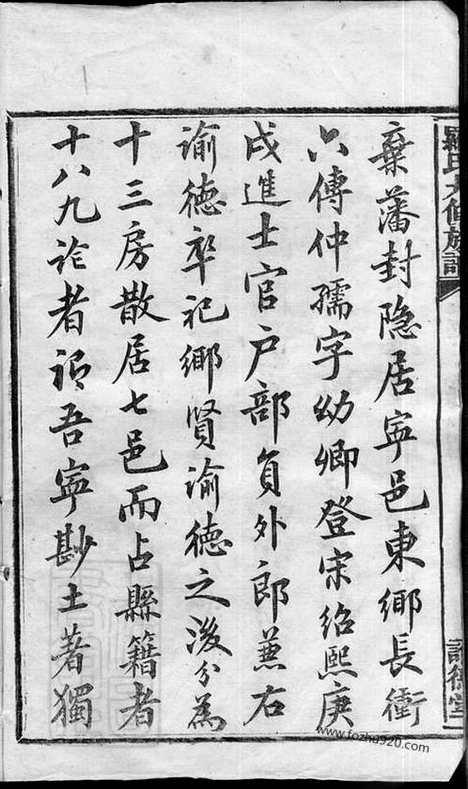 棄藩封隱居寧邑東鄉長衝
六傳仲孺字幼卿登宋紹熙庚
戌進士官戶部負外郎兼右
諭德卒祀鄉賢諭德之後分為
十三房散居七邑而占縣籍者
十八九論者謂吾寧尠土著獨
羅氏大修族譜
www.fozhu920.com